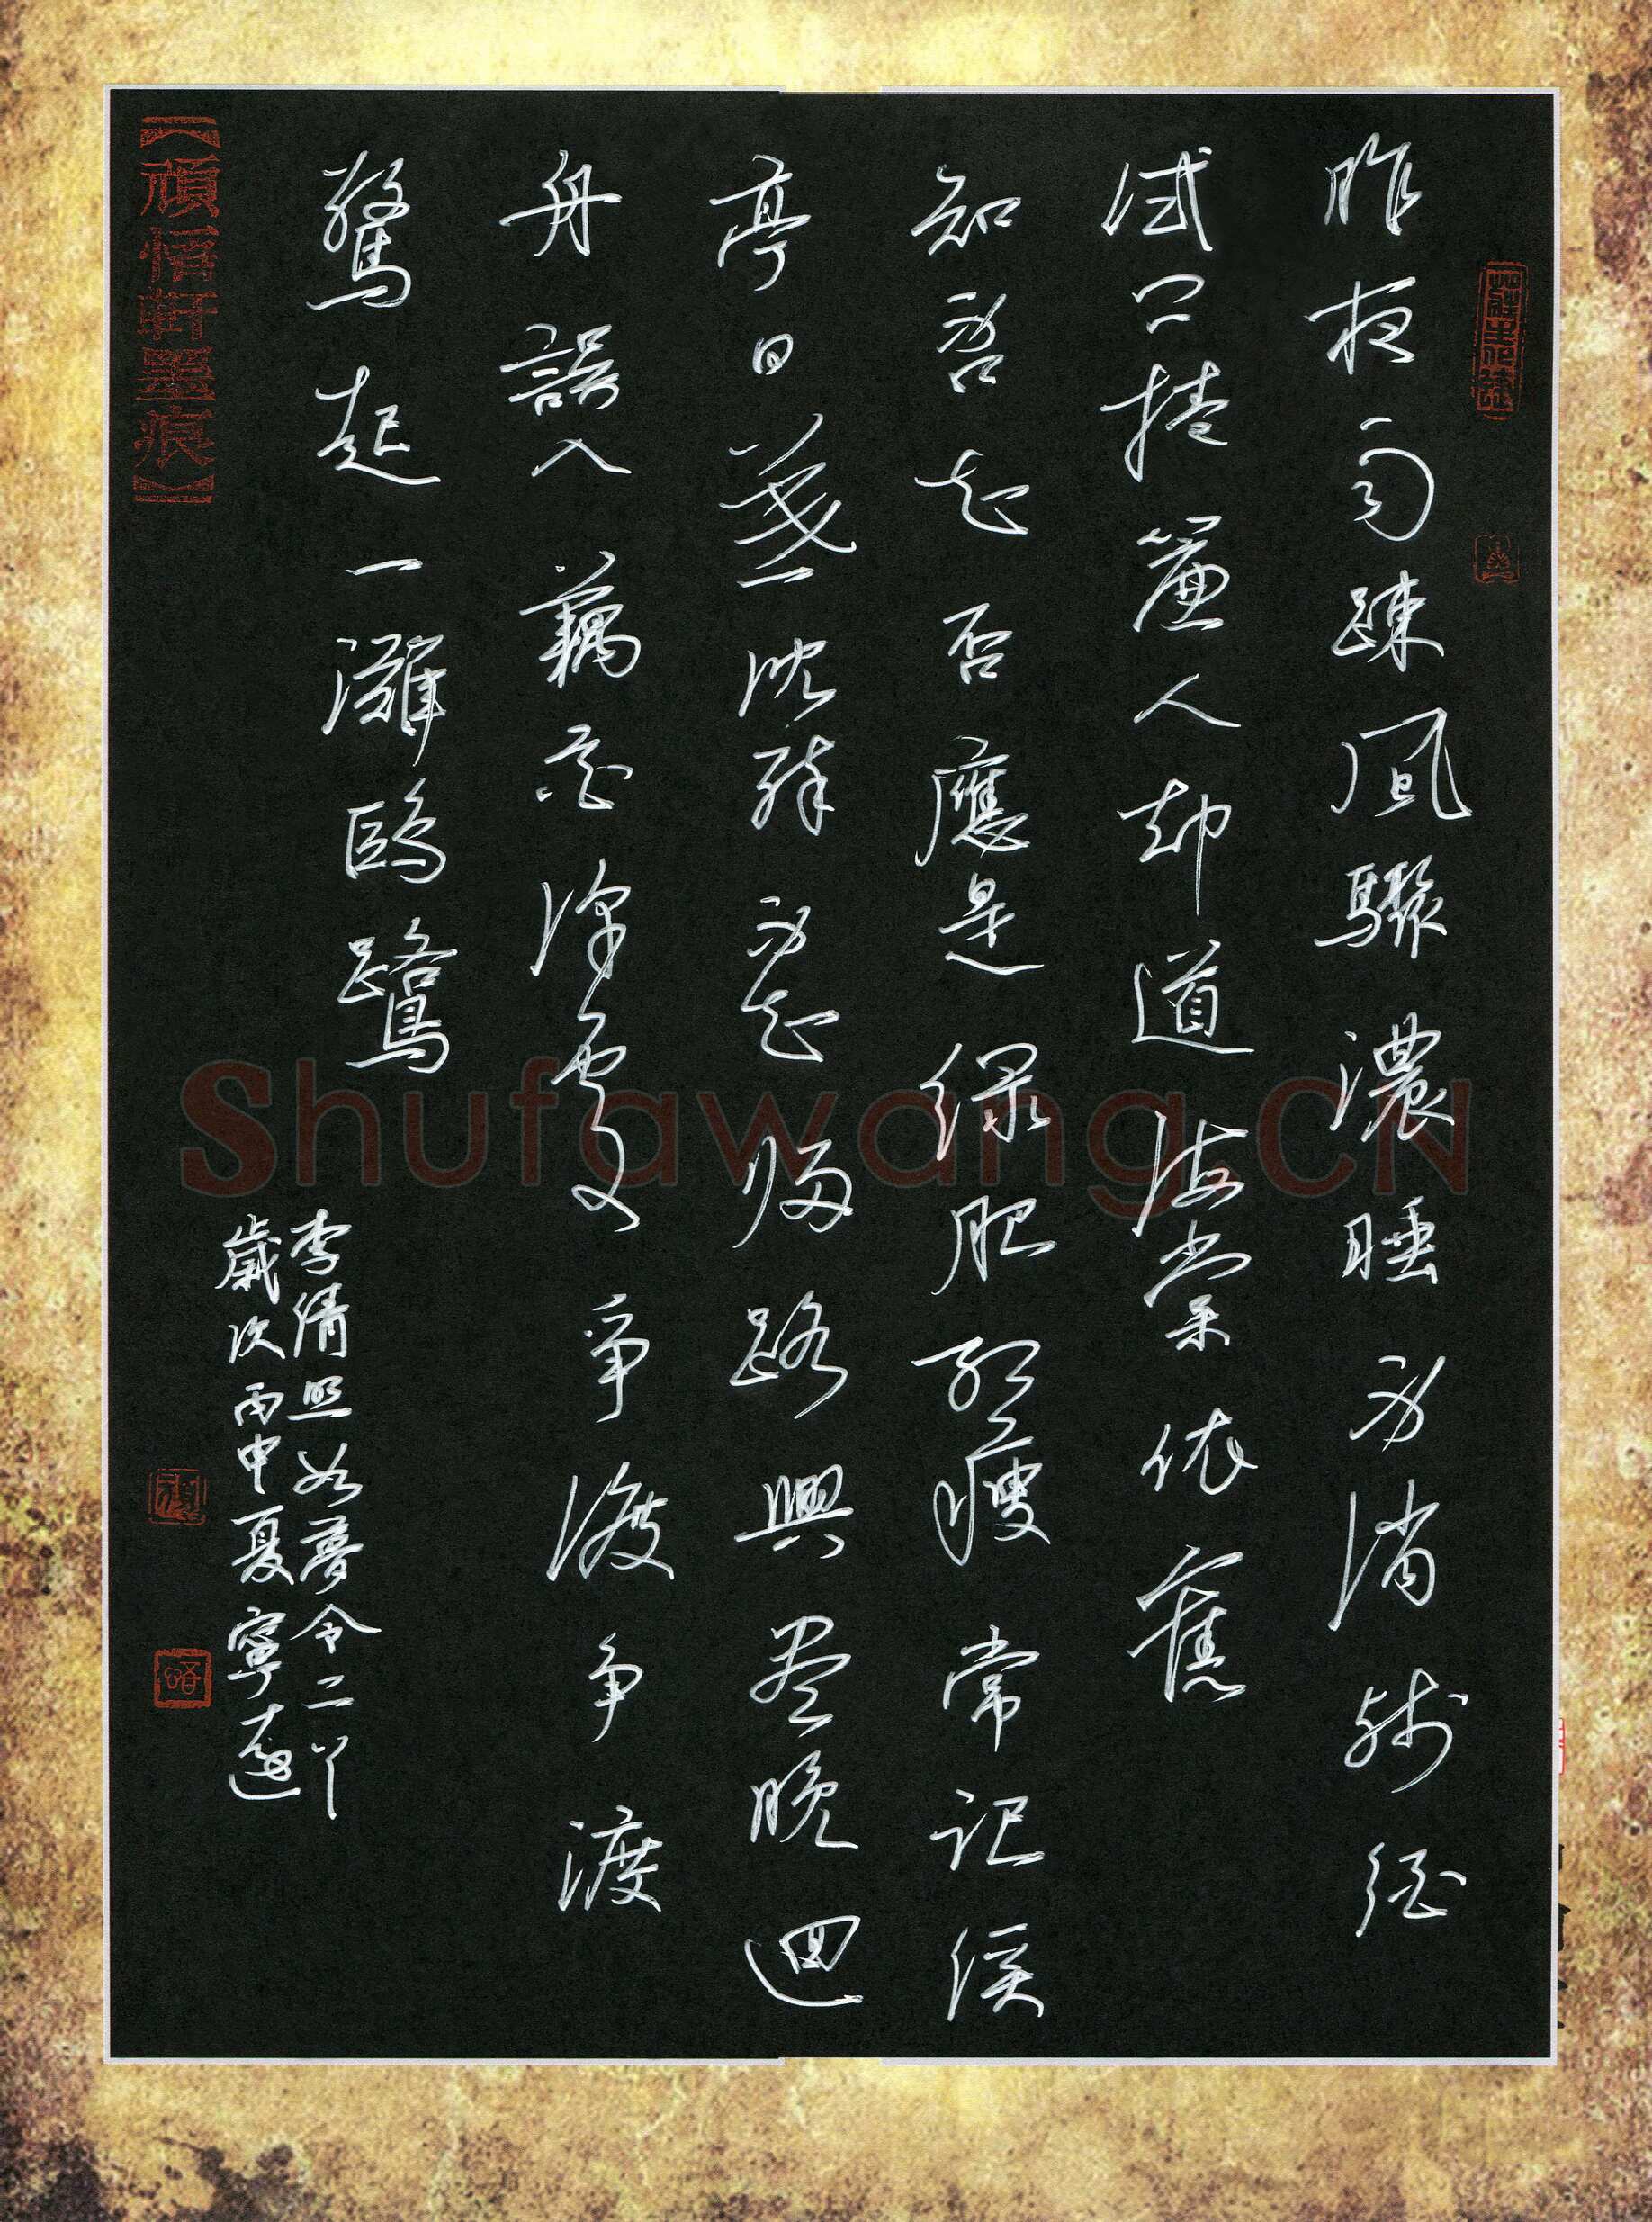 昨夜雨疎風驟濃睡不消殘酒
試問捲簾人却道海棠依舊
知否知否應是綠肥紅瘦常記溪
亭日暮沈醉不知歸路興盡晚迴
舟誤入藕花深處爭渡争渡
驚起一灘鷗鷺
李清照如夢令二
歲次丙申夏寧遠
【頑悟軒墨痕】
頑
悟
Shufawang.CN